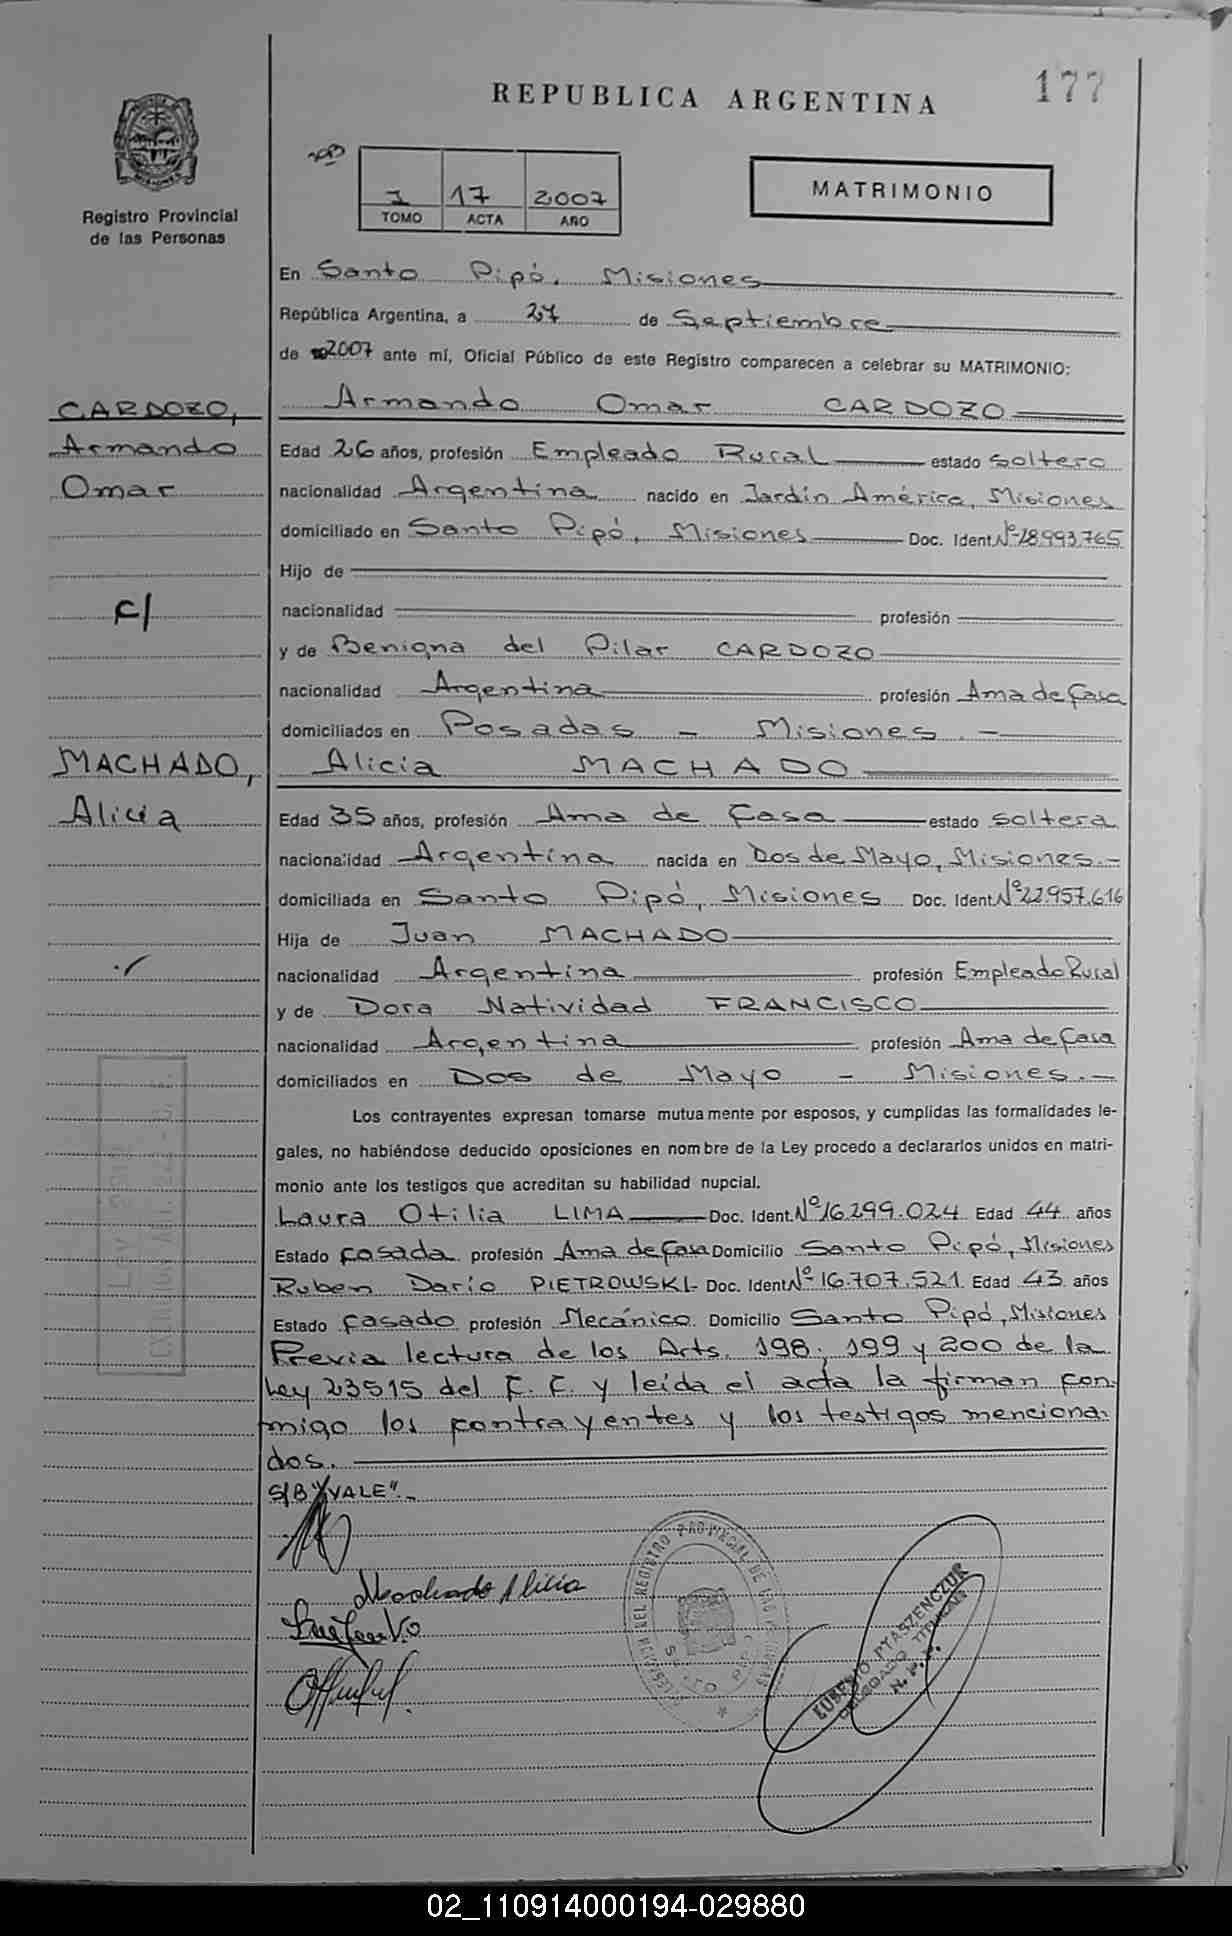 177
REPUBLICA ARGENTINA
MATRIMONIO
1 17 2007
TOMO ACTA AÑO
Registro Provincial
de las Personas
En Santo Pipó, Misiones
República Argentina, a 27 de Septiembre
de 2007 ante mí, Oficial Público de este Registro comparecen a celebrar su MATRIMONIO:
CARDOZO,
Armando
Omar
c/
MACHADO,
Alicia
Armando Omar CARDOZO
Edad 26 años, profesión Empleado Rural estado soltero
nacionalidad Argentina nacido en Jardín América, Misiones
domiciliado en Santo Pipó, Misiones Doc. Ident. Nº 28.993.765
Hijo de
nacionalidad profesión
y de Benigna del Pilar CARDOZO
nacionalidad Argentina profesión Ama de Casa
domiciliados en Posadas - Misiones.-
Alicia MACHADO
Edad 35 años, profesión Ama de Casa estado soltera
nacionalidad Argentina nacida en Dos de Mayo, Misiones.-
domiciliada en Santo Pipó, Misiones Doc. Ident. Nº 22.957.616
Hija de Juan MACHADO
nacionalidad Argentina profesión Empleado Rural
y de Dora Natividad FRANCISCO
nacionalidad Argentina profesión Ama de Casa
domiciliados en Dos de Mayo - Misiones.-
Los contrayentes expresan tomarse mutuamente por esposos, y cumplidas las formalidades le-
gales, no habiéndose deducido oposiciones en nombre de la Ley procedo a declararlos unidos en matri-
monio ante los testigos que acreditan su habilidad nupcial.
Laura Otilia LIMA Doc. Ident. Nº 16.299.024 Edad 44 años
Estado casada profesión Ama de Casa Domicilio Santo Pipó, Misiones
Ruben Darío PIETROWSKI- Doc. Ident. Nº 16.707.521 Edad 43 años
Estado casado profesión Mecánico Domicilio Santo Pipó, Misiones
Previa lectura de los Arts. 198, 199 y 200 de la
Ley 23515 del C. C. y leída el acta la firman con-
migo los contrayentes y los testigos menciona-
dos.
S/B "VALE".-
Machado Alicia
EUGENIO PTASZENCZUK
DELEGADO TITULAR
02_110914000194-029880